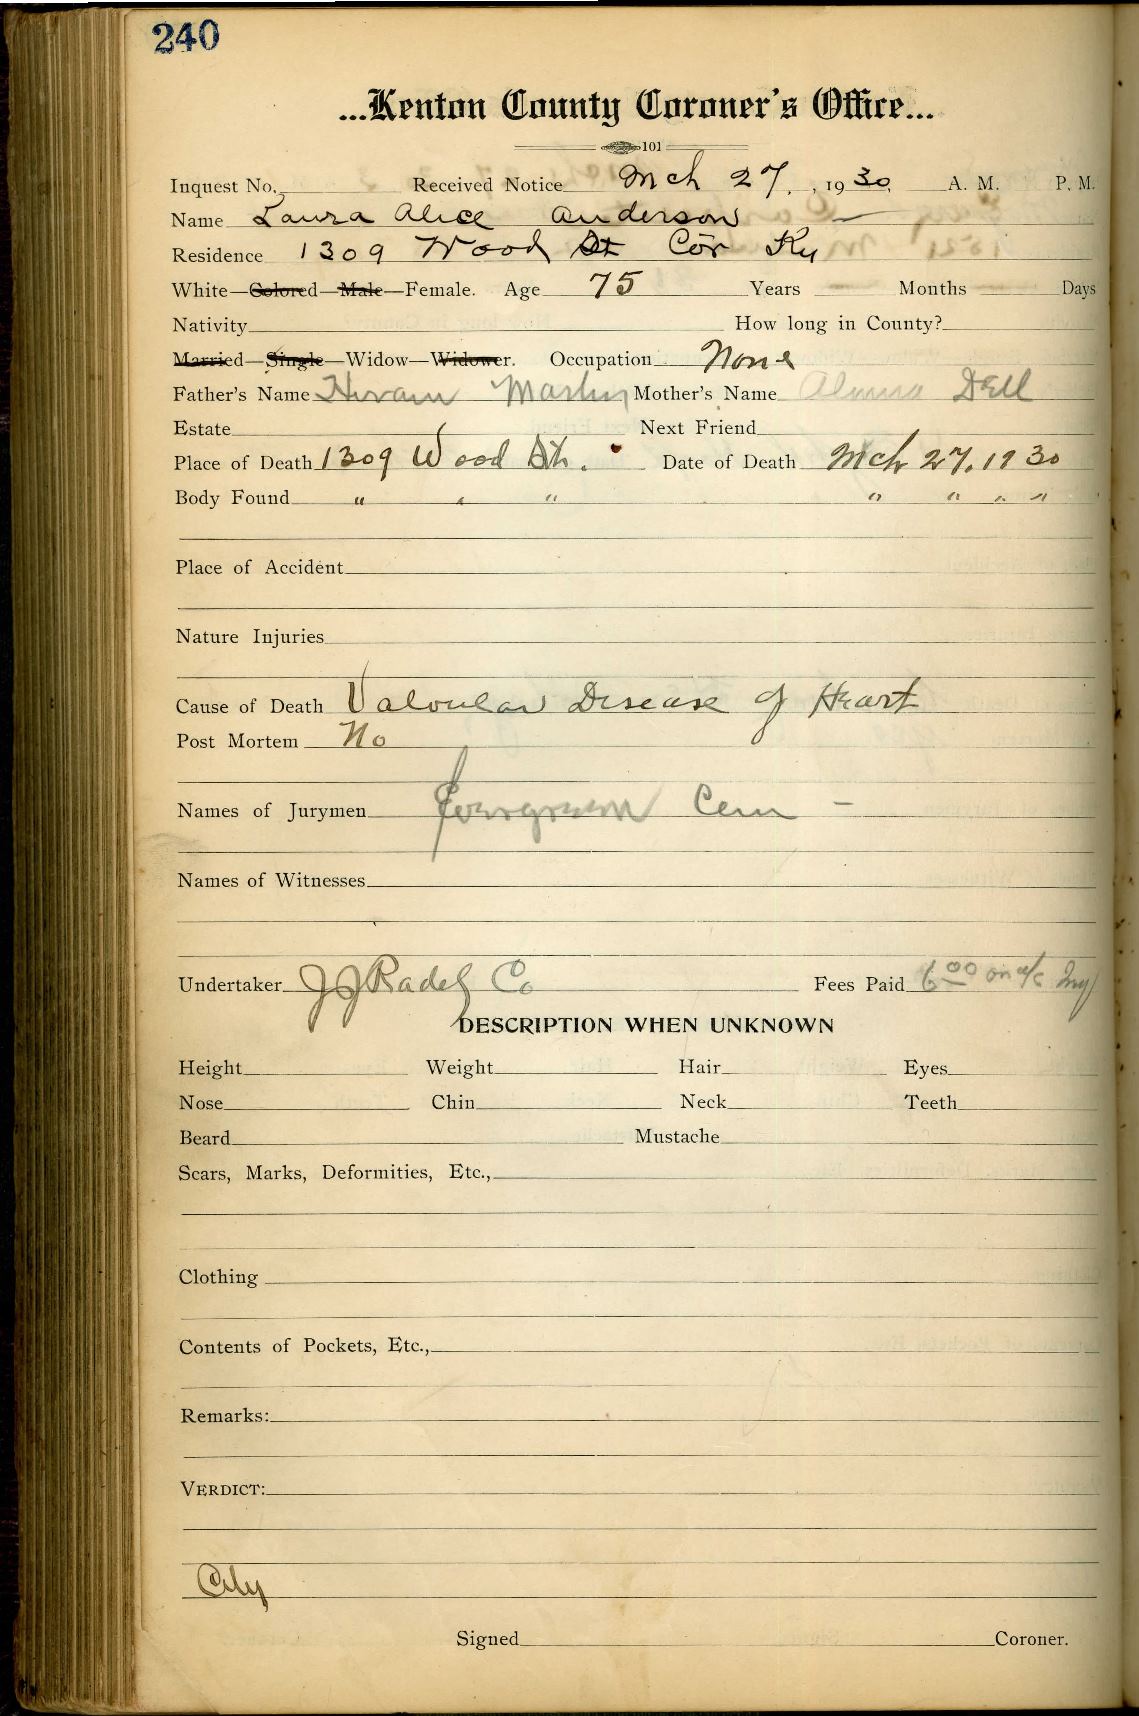 240
...Kenton County Coroner's Office...
101
Inquest No. Received Notice Mch 27, , 1930, A. M. P. M.
Name Laura Alice Anderson —
Residence 1309 Wood St Cov Ky
White—Colored—Male—Female. Age 75 Years Months Days
Nativity How long in County?
Married—Single—Widow—Widower. Occupation None
Father's Name Hiram Mother's Name Dell
Estate Next Friend
Place of Death 1309 Wood St. Date of Death Mch 27, 1930
Body Found " " " " " " "
Place of Accident
Nature Injuries
Cause of Death Valvular Disease of Heart
Post Mortem No
Names of Jurymen Evergreen Cem –
Names of Witnesses
Undertaker J J Radel Co Fees Paid 6 00 on a/c
DESCRIPTION WHEN UNKNOWN
Height Weight Hair Eyes
Nose Chin Neck Teeth
Beard Mustache
Scars, Marks, Deformities, Etc.,
Clothing
Contents of Pockets, Etc.,
Remarks:
VERDICT:
City
Signed Coroner.